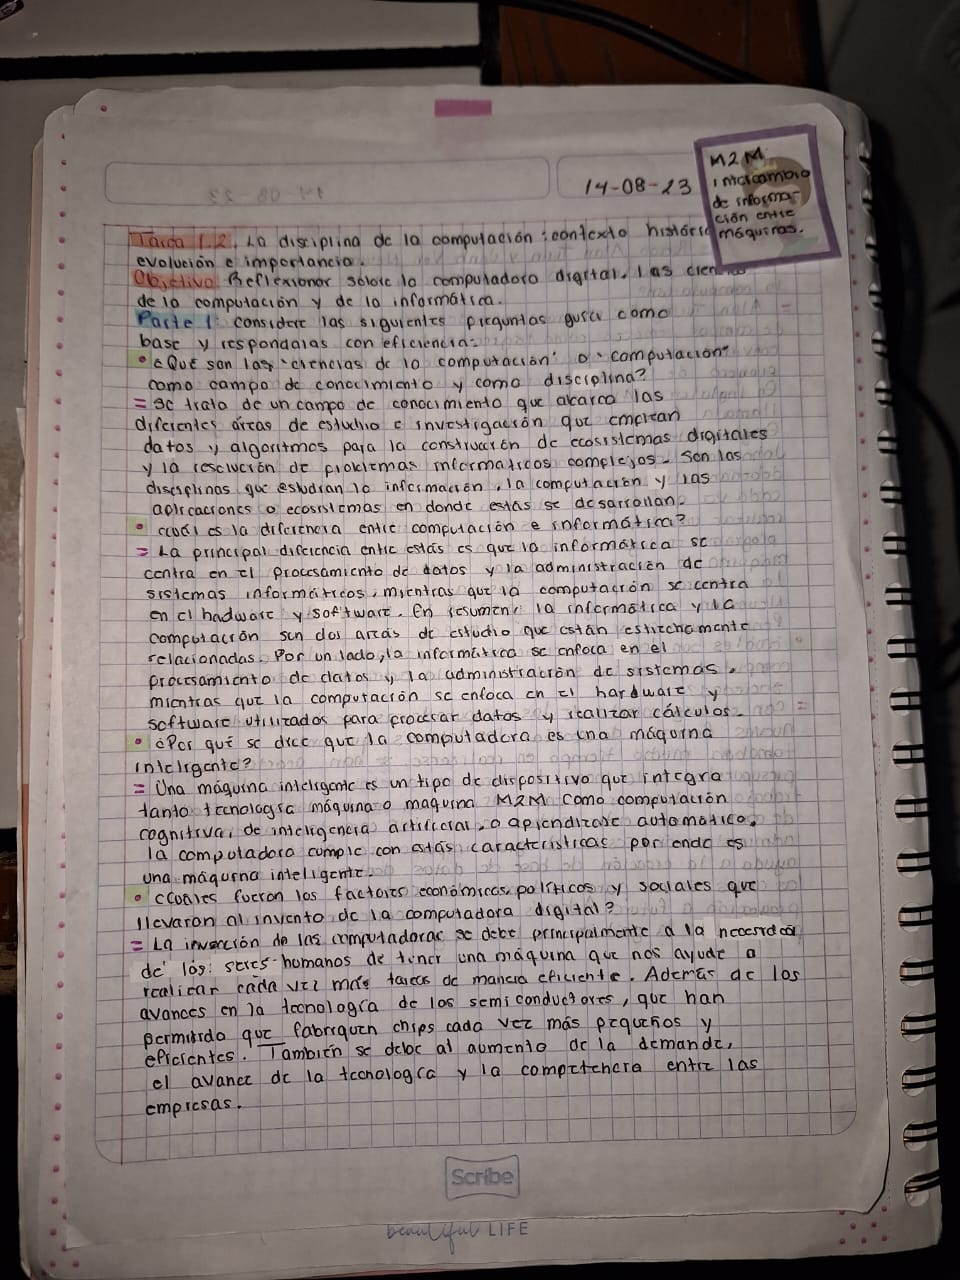 14-08-23
M2M
intercambio
de informa-
ción entre
máquinas.
Tarea 1.2. La disciplina de la computación: contexto históric
evolución e importancia.
Objetivo: Reflexionar sobre la computadora digital. las cien
de la computación y de la informática.
Parte 1: considere las siguientes preguntas guía como
base y respondalas con eficiencia:
• ¿Qué son las "ciencias de la computación" o "computación"
como campo de conocimiento y como disciplina?
= Se trata de un campo de conocimiento que abarca las
diferentes áreas de estudio e investigación que emplean
datos y algoritmos para la construcción de ecosistemas digitales
y la resolución de problemas informáticos complejos. Son las
disciplinas que estudian la información, la computación y las
aplicaciones o ecosistemas en donde estás se desarrollan.
• ¿cuál es la diferencia entre computación e informática?
= La principal diferencia entre estás es que la informática se
centra en el procesamiento de datos y la administración de
sistemas informáticos, mientras que la computación se centra
en el hadware y software. En resumen: la informática y la
computación son dos areás de estudio que están estrechamente
relacionadas. Por un lado, la informática se enfoca en el
procesamiento de datos y la administración de sistemas,
mientras que la computación se enfoca en el hardware y
software utilizados para procesar datos y realizar cálculos.
• ¿Por qué se dice que la computadora es una máquina
inteligente?
= Una máquina inteligente es un tipo de dispositivo que integra
tanto tecnología máquina a maquina M2M como computación
cognitiva, de inteligencia artificial, o aprendizaje automático,
la computadora cumple con estás características por ende es
una máquina inteligente.
• ¿Cuáles fueron los factores económicos, políticos y sociales que
llevaron al invento de la computadora digital?
= La invención de las computadoras se debe principalmente a la necesidad
de los seres humanos de tener una máquina que nos ayude a
realizar cada vez más tareas de manera eficiente. Además de los
avances en la tecnología de los semiconductores, que han
permitido que fabriquen chips cada vez más pequeños y
eficientes. También se debe al aumento de la demanda,
el avance de la tecnología y la competencia entre las
empresas.
Scribe
beautiful LIFE